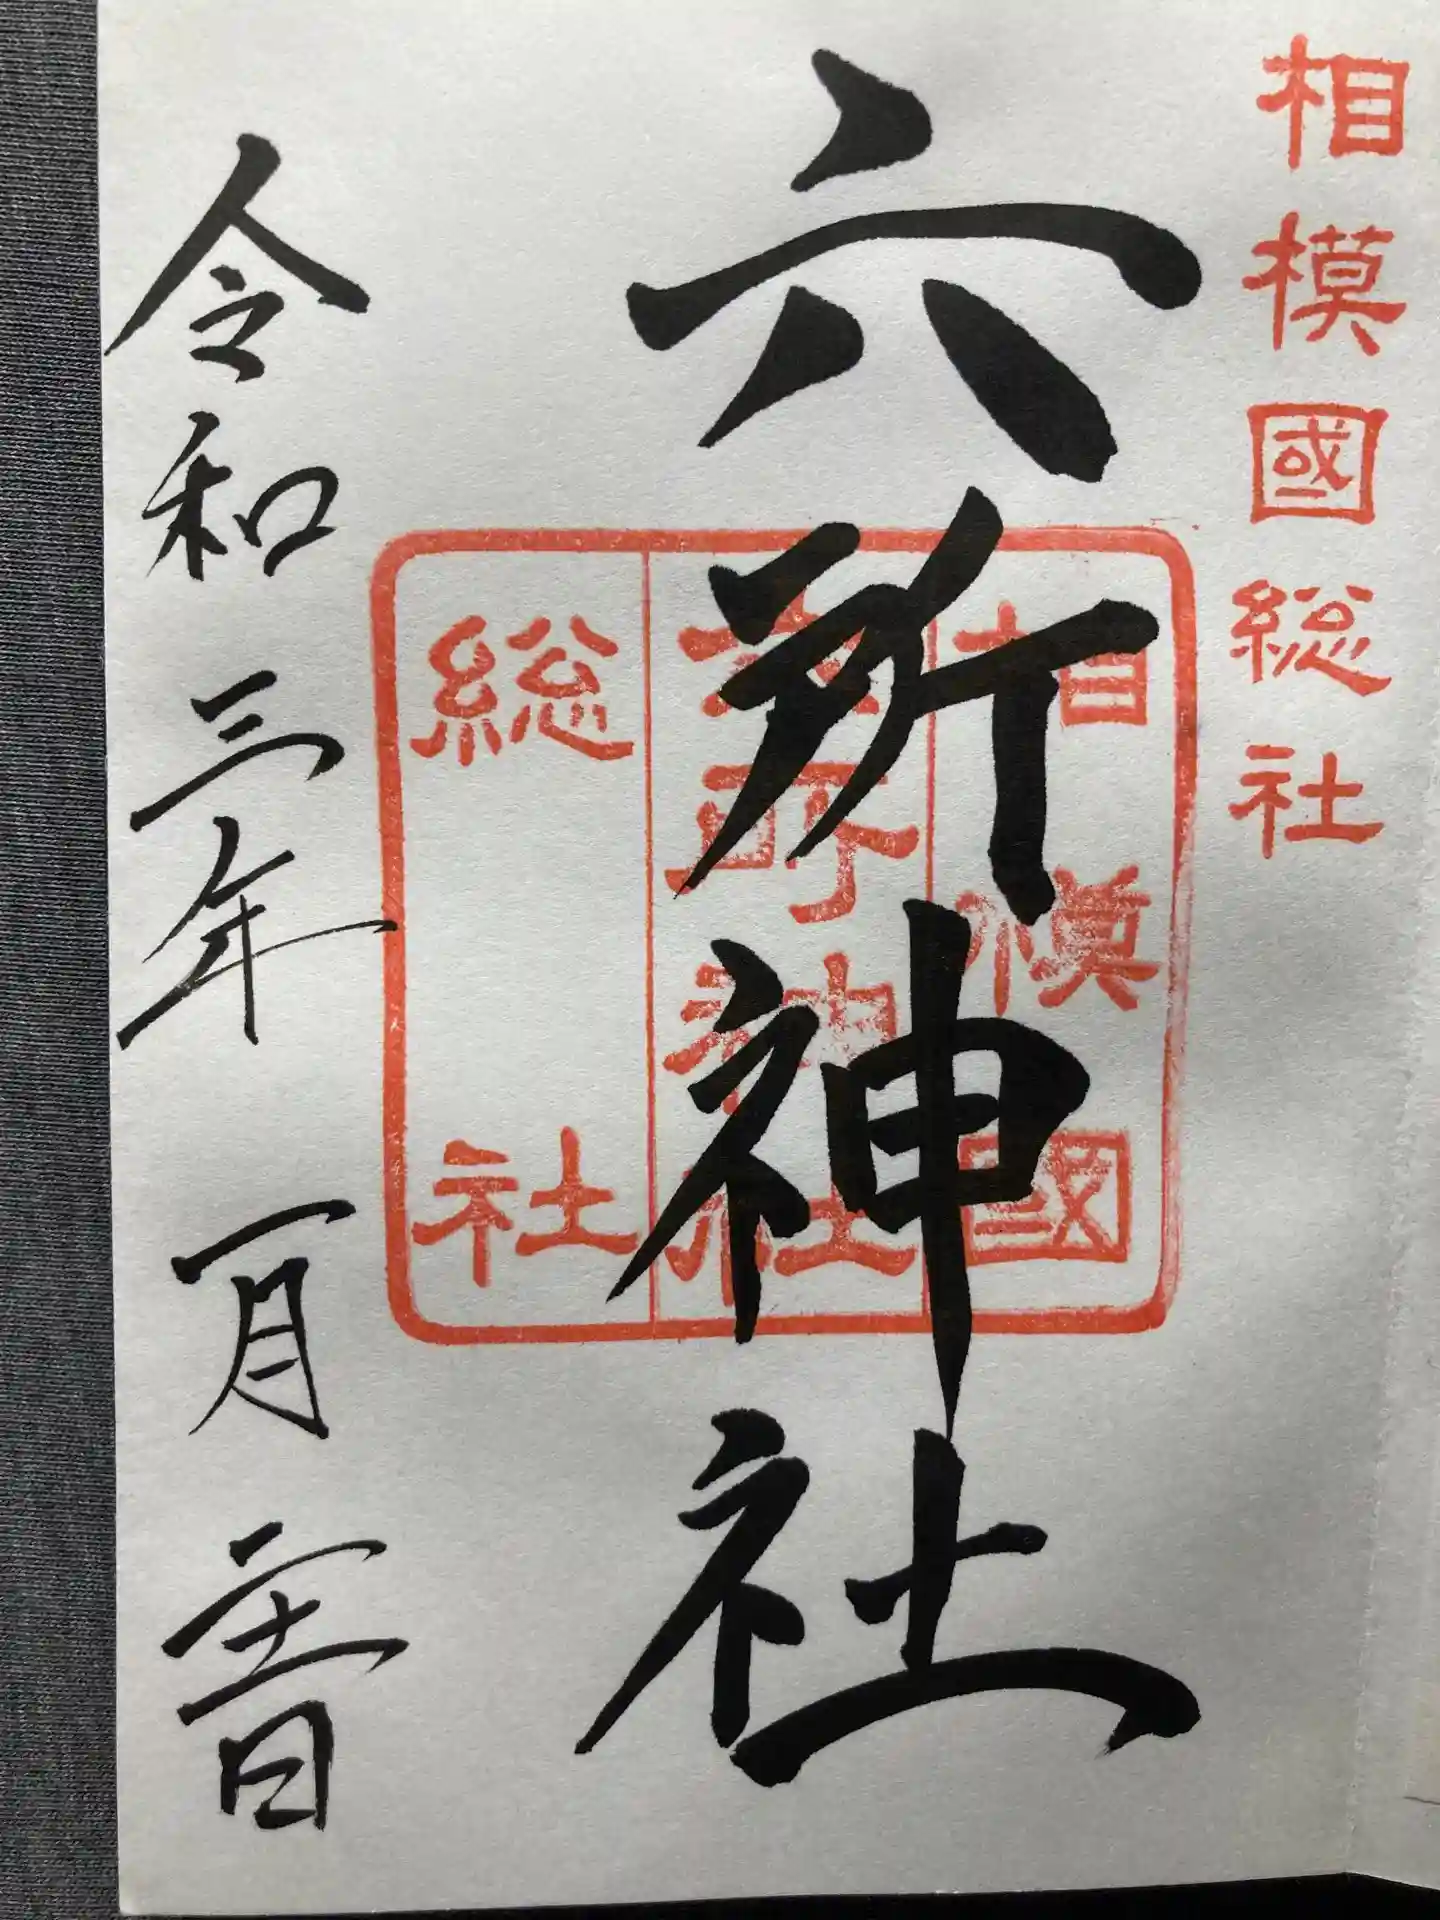 相模國総社
六所神社
相模國
六所神社
総社
令和三年一月二十一日